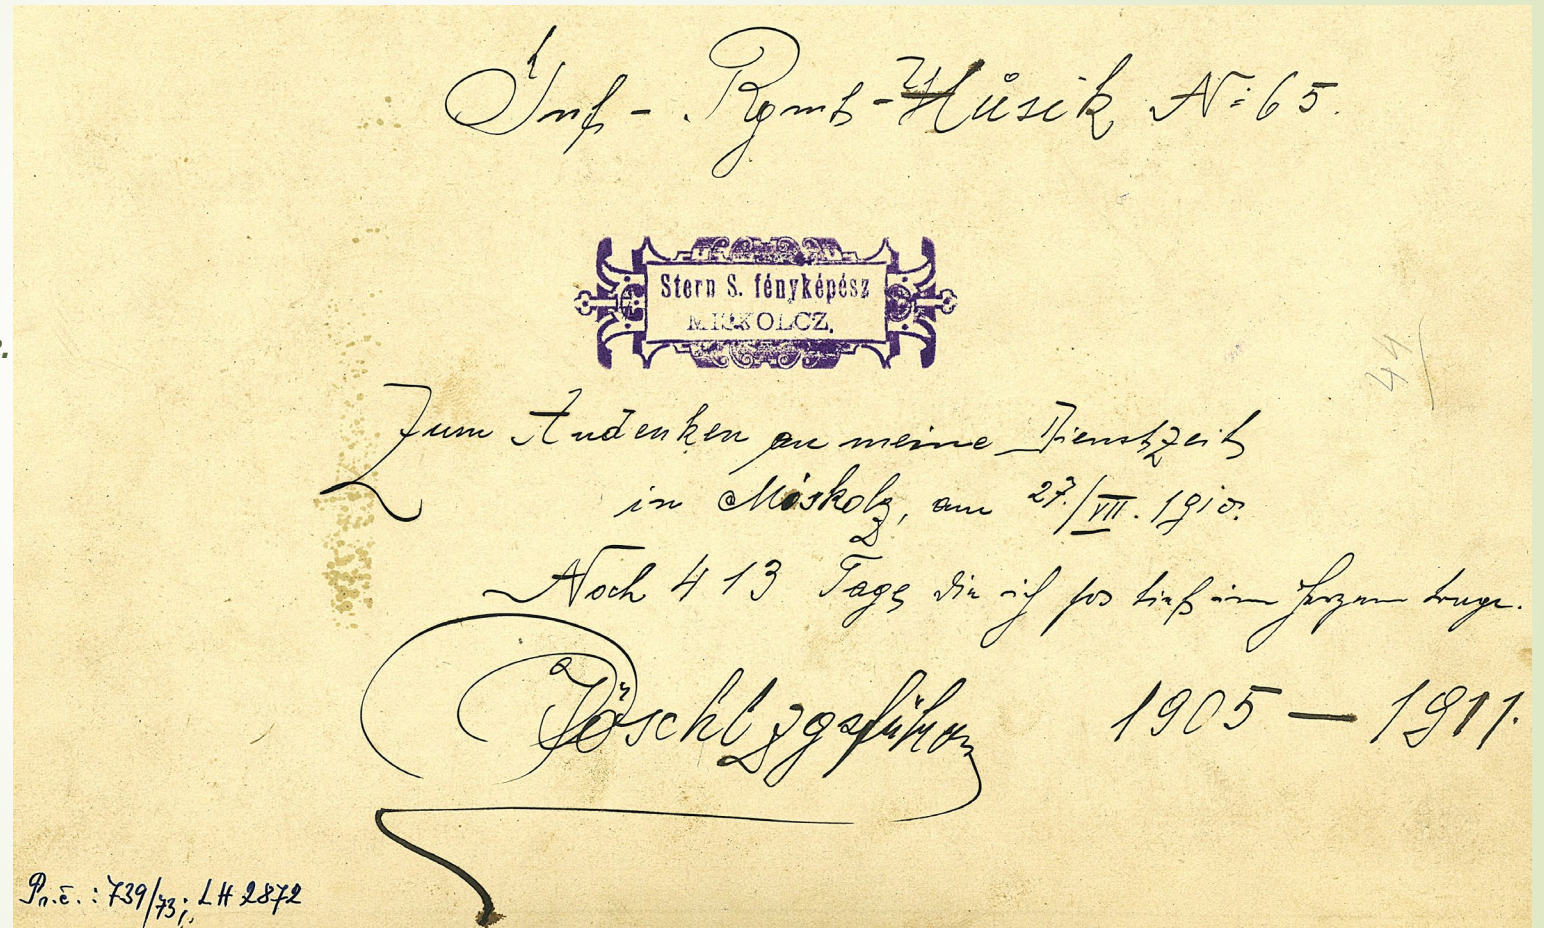 Inf - Rgmt - Musik No 65.
Stern S. fényképész
MISKOLCZ.
44
Zum Andenken an meine Dienstzeit
in Miskolz, am 27./VII. 1910.
Noch 413 Tage, die ich so tief im Herzen trage.
Pöschl Zgsführer 1905 — 1911.
Pr.č.: 739/73; LH 2872